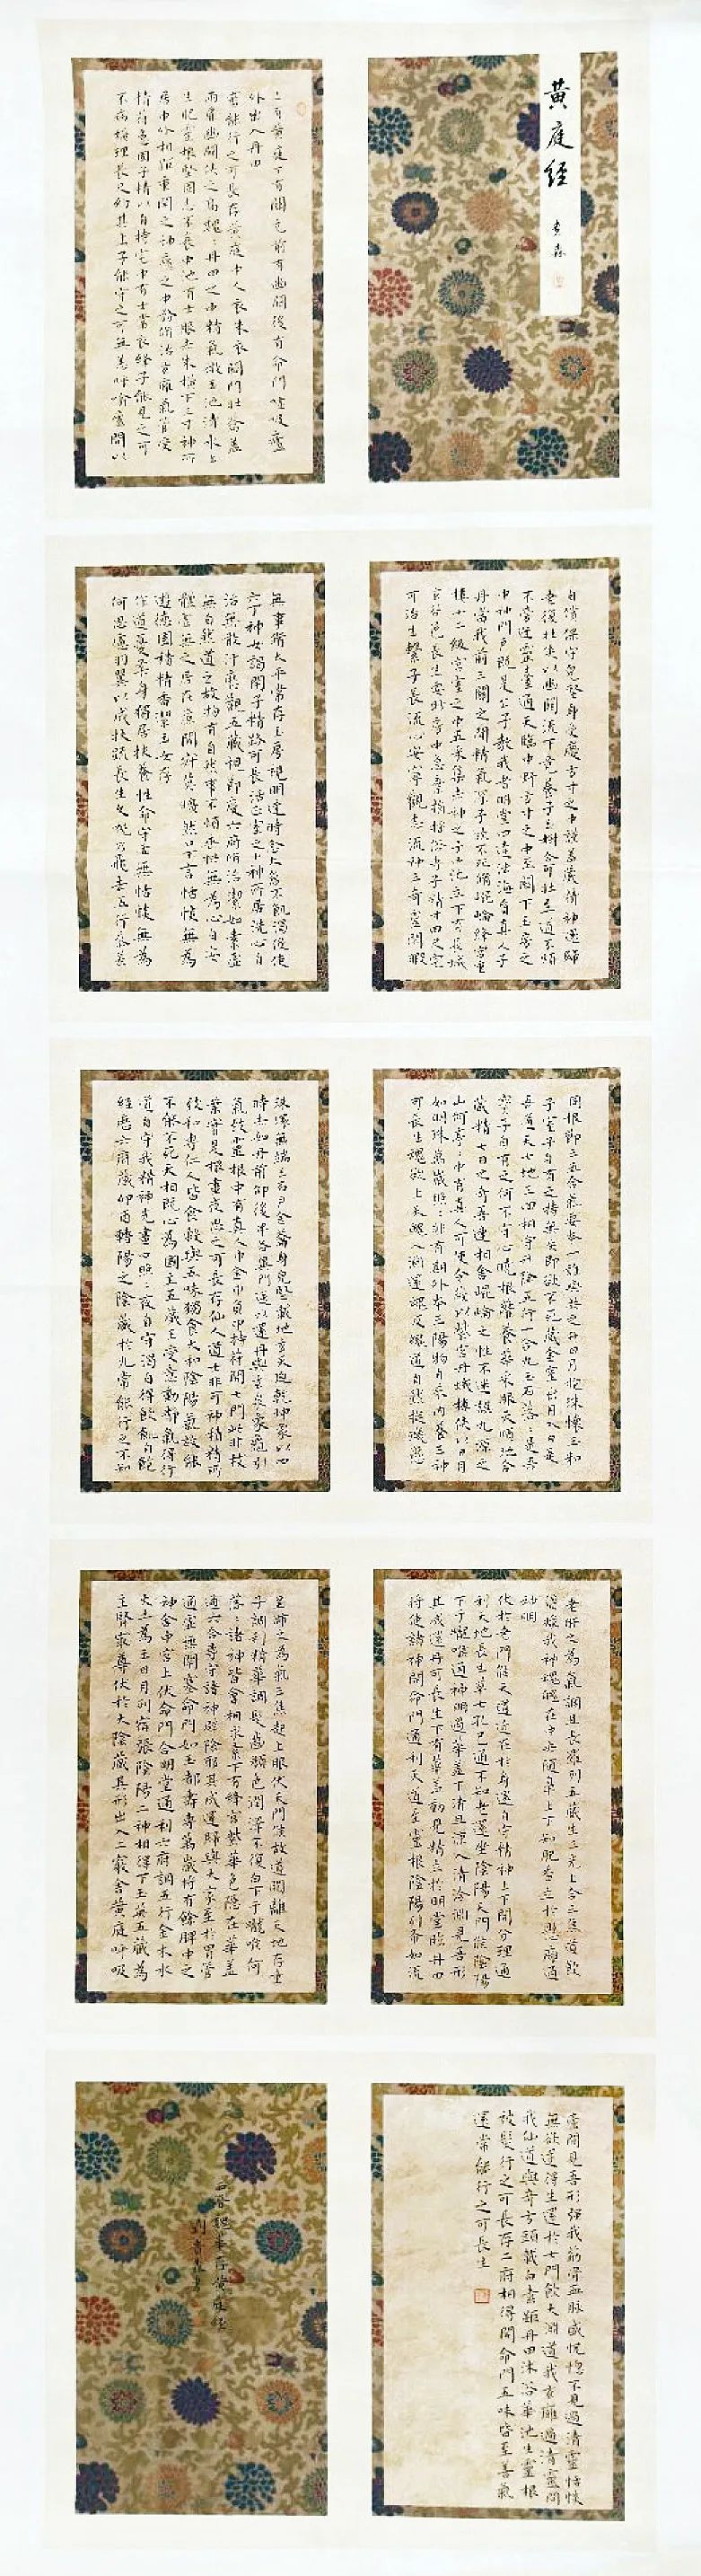 黄庭经
上有黄庭下有關元前有幽關後有命門噓吸廬
外出入丹田
審能行之可長存黄庭中人衣朱衣關門壯籥蓋
兩扉幽關俠之高巍:丹田之中精氣微玉池清水上
生肥靈根堅固志不衰中池有士服赤朱橫下三寸神所
居中外相距重閉之神廬之中務脩治玄癰氣管受
精符急固子精以自持宅中有士常衣絳子能見之可
不病橫理長尺約其上子能守之可無恙呼噏廬間以
自償保守完堅身受慶方寸之中謹蓋藏精神還歸
老復壯俠以幽關流下竟養子玉樹令可杖至道不煩
不旁迕靈臺通天臨中野方寸之中至關下玉房之
中神門戶既是公子教我者明堂四達法海員真人子
丹當我前三關之間精氣深子欲不死脩崐崙絳宮重
樓十二級宮室之中五采集赤神之子中池立下有長城
玄谷邑長生要眇房中急棄捐搖俗專子精寸田尺宅
可治生繫子長流心安寧觀志流神三奇靈閑暇
無事脩太平常存玉房視明達時念大倉不飢渴役使
六丁神女謁閉子精路可長活正室之中神所居洗心自
治無敢汙歷觀五藏視節度六府脩治潔如素虛
無自然道之故物有自然事不煩垂拱無為心自安
體虛無之居在廉間寂莫曠然口不言恬惔無為
遊德園積精香潔玉女存
作道憂柔身獨居扶養性命守虛無恬惔無為
何思慮羽翼以成扶疏長生久視乃飛去五行參差
同根節三五合氣要本一誰與共之升日月抱珠懷玉和
子室子自有之持無失即欲不死藏金室出月入日是
吾道天七地三回相守升降五行一合九玉石落:是吾
寶子自有之何不守心曉根蒂養華采服天順地合
藏精七日之奇吾連相舍崐崙之性不迷誤九源之
山何亭:中有真人可使令蔽以紫宮丹城樓俠以日月
如明珠萬歲照:非有期外本三陽物自來內養三神
可長生魂欲上天魄入淵還魂反魄道自然旋璣懸
珠環無端玉石戶金籥身完堅載地玄天迫乾坤象以四
時赤如丹前仰後卑各異門送以還丹與玄泉象龜引
氣致靈根中有真人巾金巾負甲持符開七門此非枝
葉實是根晝夜思之可長存仙人道士非可神積精所
致和專仁人皆食穀與五味獨食大和陰陽氣故能
不死天相既心為國主五藏王受意動靜氣得行
道自守我精神光晝日照:夜自守渴自得飲飢自飽
經歷六府藏卯酉轉陽之陰藏於九常能行之不知
老肝之為氣調且長羅列五藏生三光上合三焦道飲
醬漿我神魂魄在中央隨鼻上下知肥香立於懸癰通
神明
伏於老門候天道近在於身還自守精神上下開分理通
利天地長生草七孔已通不知老還坐陰陽天門候陰陽
下于嚨喉通神明過華蓋下清且涼入清泠淵見吾形
其成還丹可長生下有華蓋動見精立於明堂臨丹田
將使諸神開命門通利天道至靈根陰陽列布如流
星肺之為氣三焦起上服伏天門候故道闚離天地存童
子調利精華調髮齒顏色潤澤不復白下于嚨喉何
落:諸神皆會相求索下有絳宮紫華色隱在華蓋
通六合專守諸神辟除邪其成還歸與大家至於胃管
通虛無閉塞命門如玉都壽專萬歲將有餘脾中之
神舍中宮上伏命門合明堂通利六府調五行金木水
火土為王日月列宿張陰陽二神相得下玉英五藏為
主腎最尊伏於大陰藏其形出入二竅舍黄庭呼吸
虛間見吾形強我筋骨血脈盛恍惚不見過清靈恬惔
無欲遂得生還於七門飲大淵道我玄癰過清靈問
我仙道與奇方頭載白素距丹田沐浴華池生靈根
被髮行之可長存二府相得開命門五味皆至善氣
還常能行之可長生
右晉魏華存黄庭經